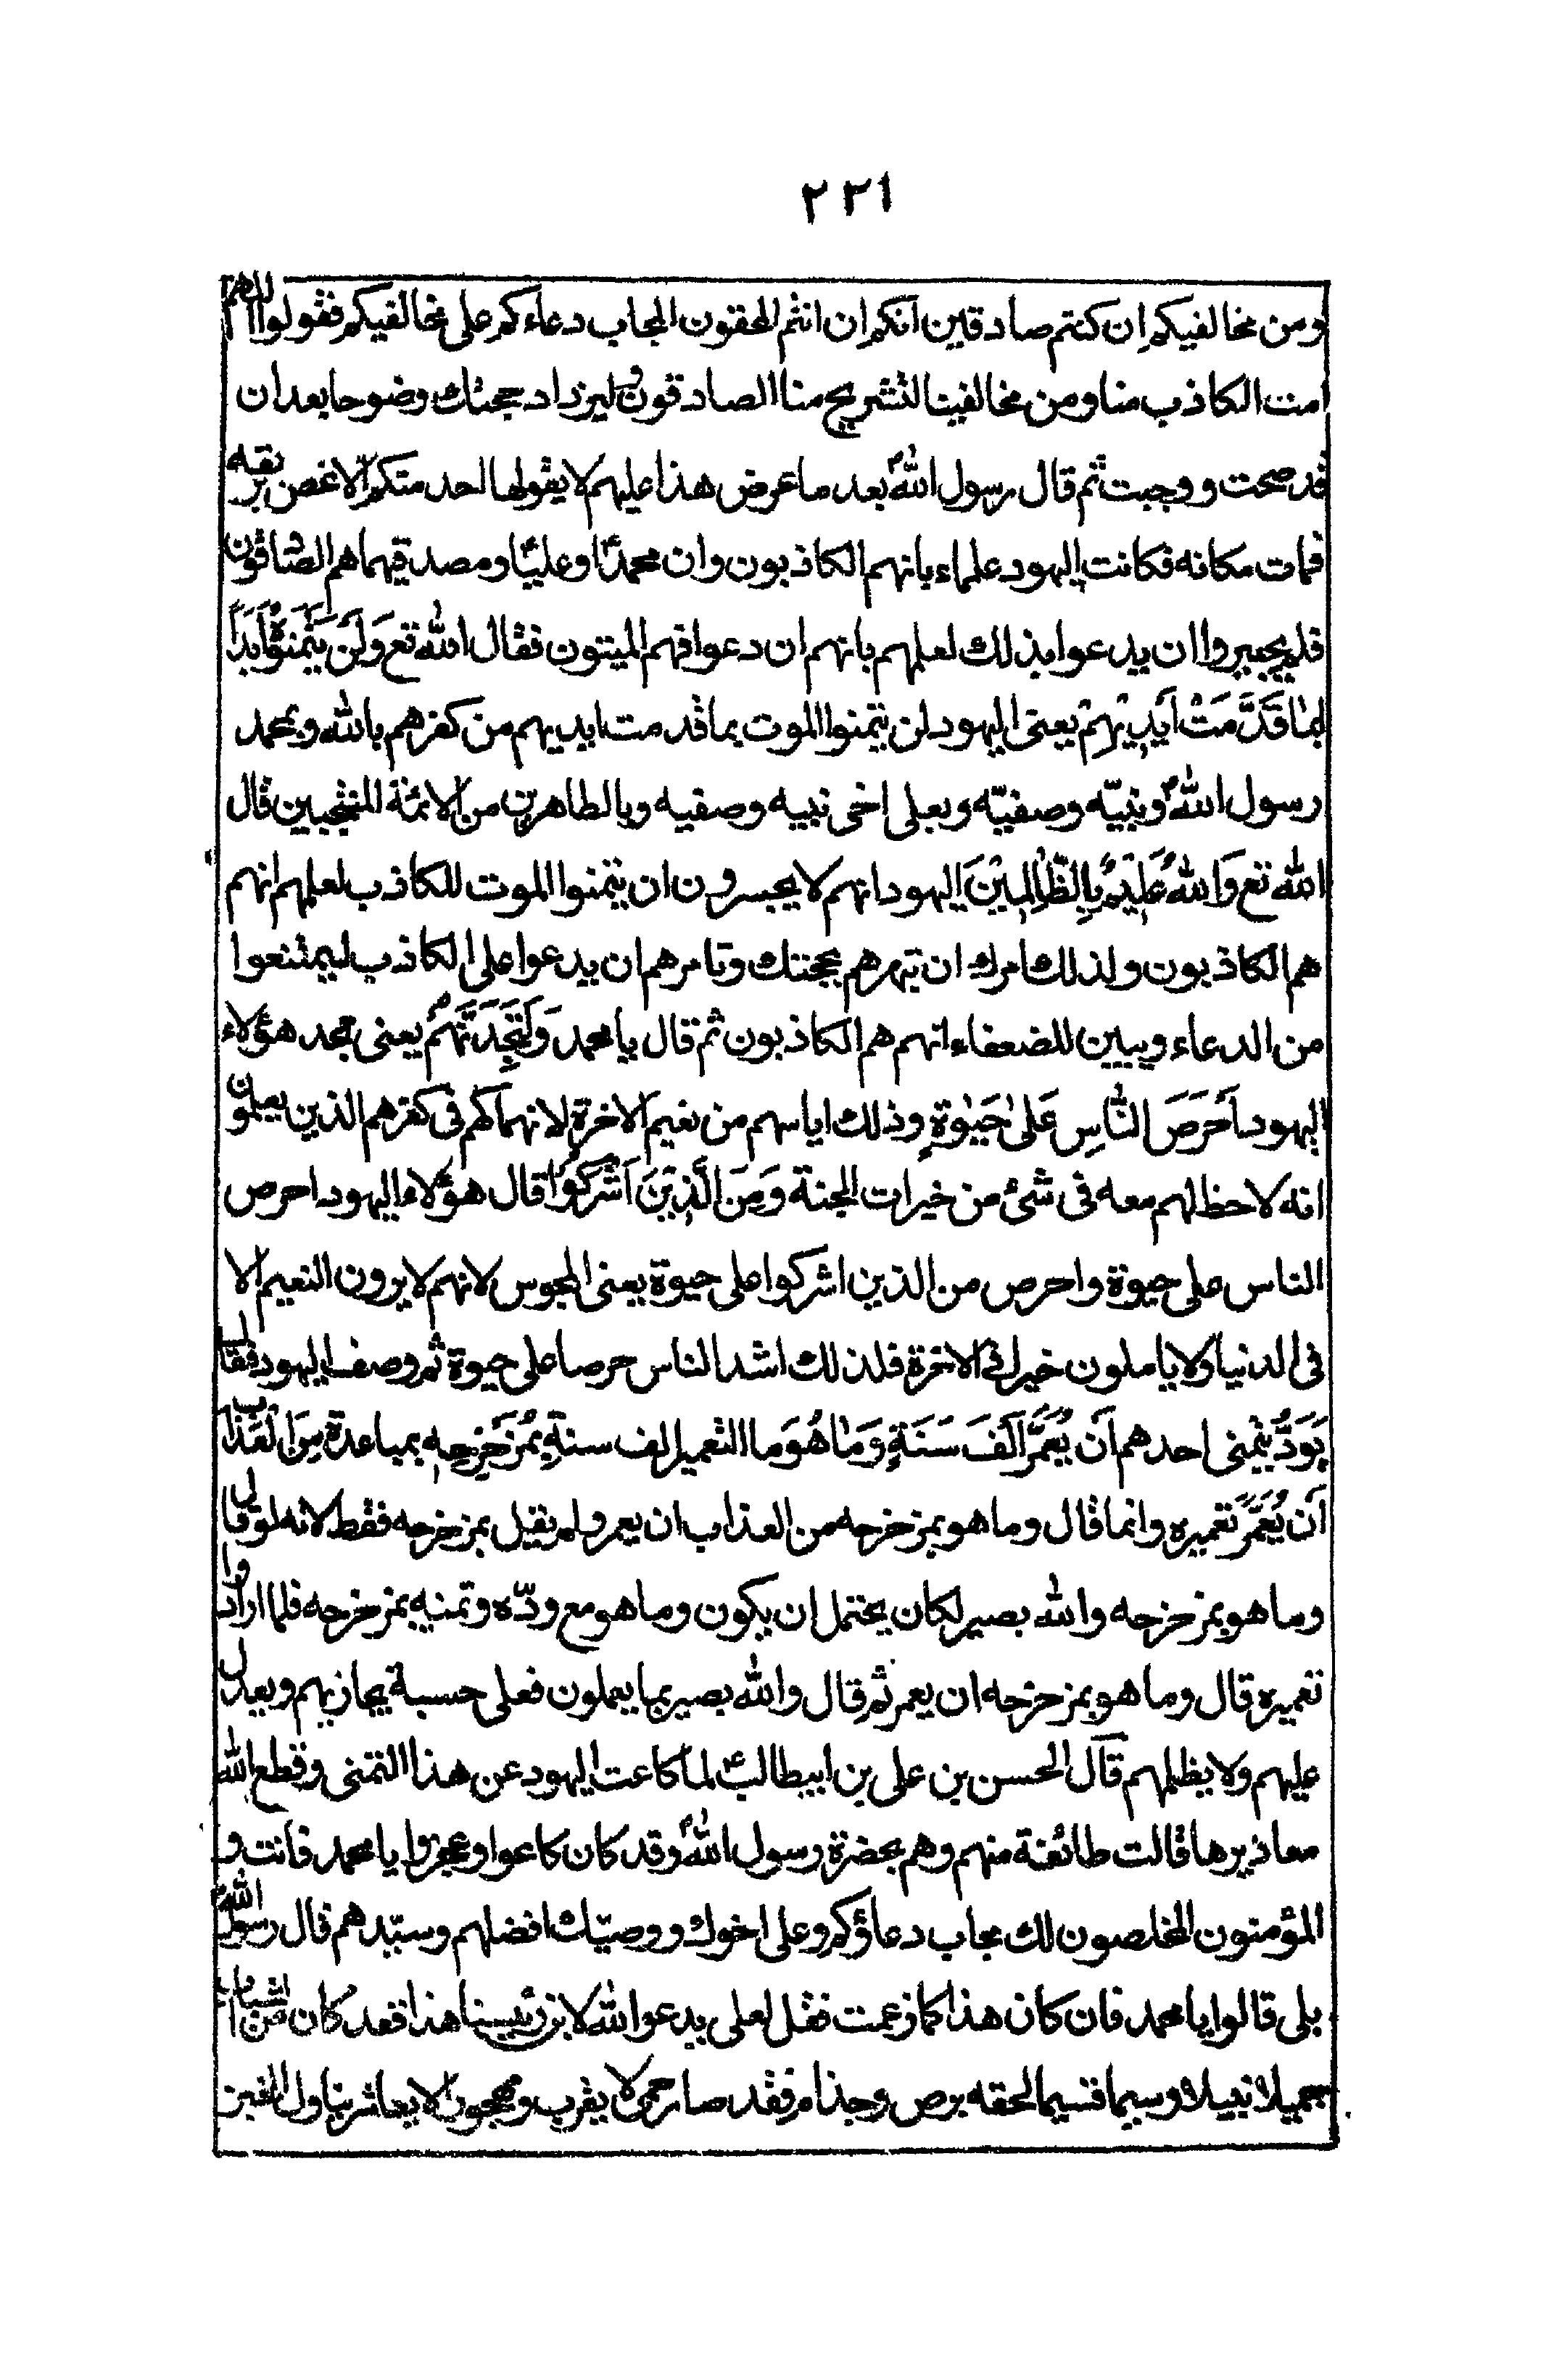 ٢٢١
ومن مخالفيكم ان كنتم صادقين انكم ان انتم المحقون المجاب دعاءكم على مخالفيكم فقولوا اللهم
امت الكاذب منا ومن مخالفينا لتستريح منا الصادقون وليزداد حجتك وضوحا بعد ان
قد صحت ووجبت ثم قال رسول اللهؐ بعد ما عرض هذا عليهم لا يقولها احد منكم الا غص بريقه
فمات مكانه فكانت اليهود علماء بانهم الكاذبون وان محمداؐ وعلياؑ ومصدقيهما هم الصادقون
فلم يجسروا ان يدعوا بذلك لعلمهم بانهم ان دعوا فهم الميتون فقال الله تع وَلَنْ يَتَمَنَّوْهُ اَبَدًا
بِمٰا قَدَّمَتْ اَيْدِيْهِمْ يعنى اليهود لن يتمنوا الموت بما قدمت ايديهم من كفرهم بالله وبمحمد
رسول اللهؐ ونبيّه وصفيّه وبعلى اخى نبيه وصفيه وبالطاهرين من الائمة المنتجبين قال
الله تع وَاللهُ عَلِيْمٌ بِالظّٰالِمِيْنَ اليهود انهم لا يجسرون ان يتمنوا الموت للكاذب لعلمهم انهم
هم الكاذبون ولذلك امرك ان تبهرهم بحجتك وتامرهم ان يدعوا على الكاذب ليمتنعوا
من الدعاء ويبين للضعفاء انهم هم الكاذبون ثم قال يا محمد وَلَتَجِدَنَّهُمْ يعنى تجد هؤلاء
اليهود اَحْرَصَ النّٰاسِ عَلىٰ حَيٰوةٍ وذلك اياسهم من نعيم الاخرة لانهماكهم فى كفرهم الذين يعلمون
انه لا حظ لهم معه فى شئ من خيرات الجنة وَمِنَ الَّذِيْنَ اَشْرَكُوْا قال هؤلاء اليهود احرص
الناس على حيوة واحرص من الذين اشركوا على حيوة يعنى المجوس لانهم لا يرون النعيم الا
فى الدنيا ولا ياملون خيرا فى الاخرة فلذلك اشد الناس حرصا على حيوة ثم وصف اليهود فقال
يَوَدُّ يتمنى احدهم اَنْ يُعَمَّرَ اَلْفَ سَنَةٍ وَمٰا هُوَ ما التعمير الف سنة بِمُزَحْزِحِهٖ بمباعدة مِنَ الْعَذٰابِ
اَنْ يُعَمَّرَ تعميره وانما قال وما هو بمزحزحه من العذاب ان يعمر ولم يقل بمزحزحه فقط لانه لو قال
وما هو بمزحزحه والله بصير لكان يحتمل ان يكون وما هو مع ودّه وتمنيه بمزحزحه فلما ارادوا
تعميره قال وما هو بمزحزحه ان يعمر ثم قال والله بصير بما يعملون فعلى حسبه يجازيهم ويعدل
عليهم ولا يظلمهم قال الحسن بن على بن ابيطالبؑ لما كاعت اليهود عن هذا التمنى وقطع الله
معاذيرها قالت طائفة منهم وهم بحضرة رسول اللهؐ وقد كان كاعوا وعجزوا يا محمد فانت و
المؤمنون المخلصون لك مجاب دعاؤكم وعلى اخوك ووصيّك افضلهم وسيّدهم قال رسول اللهؐ
بلى قالوا يا محمد فان كان هذا كما زعمت فقل لعلى يدعوا الله لابن رئيسنا هذا فقد كان من الشباب
جميلا نبيلا وسيما قسيما لحقه برص وجذام فقد صار حمى لا يقرب ومهجورا لا يعاشر يناول الخبز